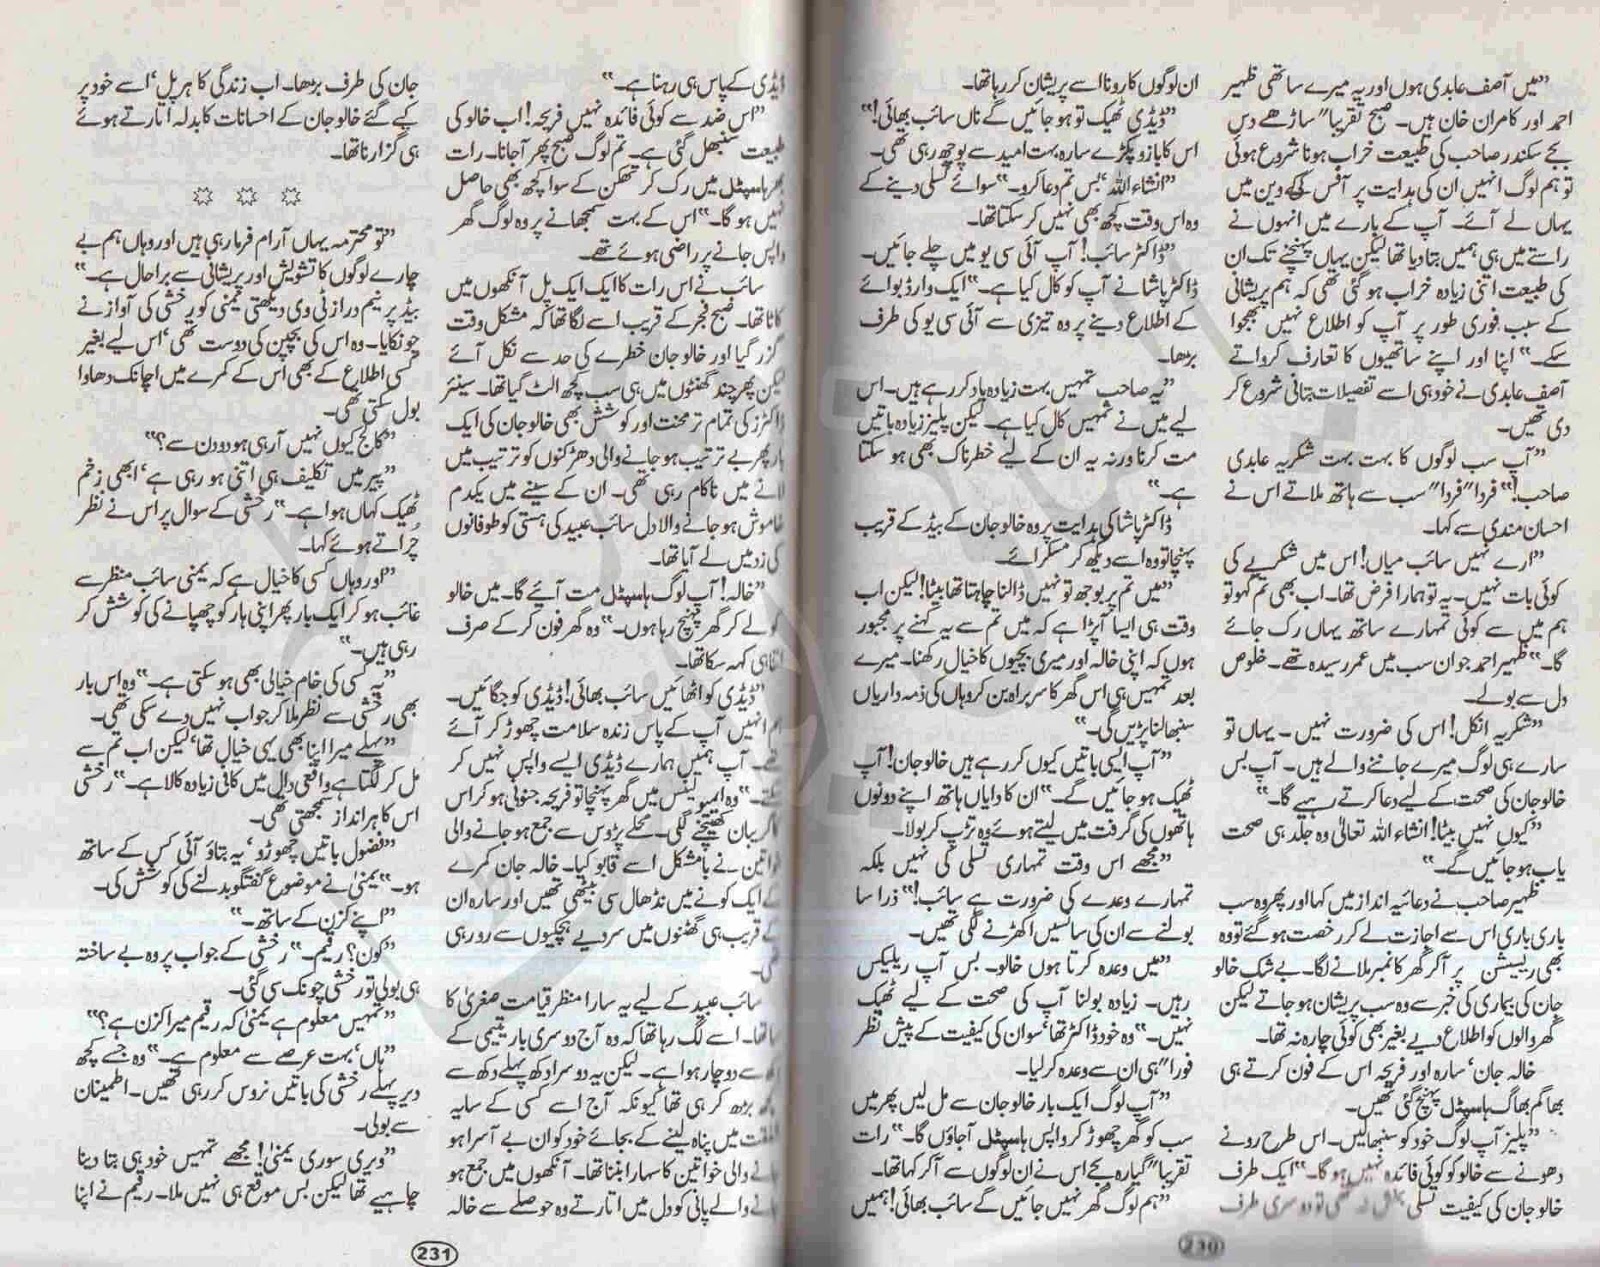 ”میں آصف عابدی ہوں اور یہ میرے ساتھی ظہیر
احمد اور کامران خان ہیں۔ صبح تقریبا" ساڑھے دس
بجے سکندر صاحب کی طبیعت خراب ہونا شروع ہوئی
تو ہم لوگ انہیں ان کی ہدایت پر آفس کی وین میں
یہاں لے آئے۔ آپ کے بارے میں انہوں نے
راستے میں ہی ہمیں بتا دیا تھا لیکن یہاں پہنچنے تک ان
کی طبیعت اتنی زیادہ خراب ہو گئی تھی کہ ہم پریشانی
کے سبب فوری طور پر آپ کو اطلاع نہیں بھجوا
سکے۔“ اپنا اور اپنے ساتھیوں کا تعارف کرواتے
آصف عابدی نے خود ہی اسے تفصیلات بتانی شروع کر
دی تھیں۔
”آپ سب لوگوں کا بہت بہت شکریہ عابدی
صاحب!“ فردا" فردا" سب سے ہاتھ ملاتے اس نے
احسان مندی سے کہا۔
”ارے نہیں سائب میاں! اس میں شکریے کی
کوئی بات نہیں۔ یہ تو ہمارا فرض تھا۔ اب بھی تم کہو تو
ہم میں سے کوئی تمہارے ساتھ یہاں رک جائے
گا۔“ ظہیر احمد جو ان سب میں عمر رسیدہ تھے۔ خلوص
دل سے بولے۔
”شکریہ انکل! اس کی ضرورت نہیں۔ یہاں تو
سارے ہی لوگ میرے جاننے والے ہیں۔ آپ بس
خالو جان کی صحت کے لیے دعا کرتے رہیے گا۔“
”کیوں نہیں بیٹا! انشاء اللہ تعالیٰ وہ جلد ہی صحت
یاب ہو جائیں گے۔“
ظہیر صاحب نے دعائیہ انداز میں کہا اور پھر وہ سب
باری باری اس سے اجازت لے کر رخصت ہو گئے تو وہ
بھی ریسپشن پر آکر گھر کا نمبر ملانے لگا۔ بے شک خالو
جان کی بیماری کی خبر سے وہ سب پریشان ہو جاتے لیکن
گھر والوں کو اطلاع دیے بغیر بھی کوئی چارہ نہ تھا۔
خالہ جان‘ سارہ اور فریحہ اس کے فون کرتے ہی
بھاگم بھاگ ہاسپٹل پہنچ گئی تھیں۔
”پلیز آپ لوگ خود کو سنبھالیں۔ اس طرح رونے
دھونے سے خالو کو کوئی فائدہ نہیں ہو گا۔“ ایک طرف
خالو جان کی کیفیت تسلی بخش نہ تھی تو دوسری طرف
ان لوگوں کا رونا اسے پریشان کر رہا تھا۔
”ڈیڈی ٹھیک تو ہو جائیں گے ناں سائب بھائی!“
اس کا بازو پکڑے سارہ بہت امید سے پوچھ رہی تھی۔
”انشاء اللہ‘ بس تم دعا کرو۔“ سوائے تسلی دینے کے
وہ اس وقت کچھ بھی نہیں کر سکتا تھا۔
”ڈاکٹر سائب! آپ آئی سی یو میں چلے جائیں۔
ڈاکٹر پاشا نے آپ کو کال کیا ہے۔“ ایک وارڈ بوائے
کے اطلاع دینے پر وہ تیزی سے آئی سی یو کی طرف
بڑھا۔
”یہ صاحب تمہیں بہت زیادہ یاد کر رہے ہیں۔ اس
لیے میں نے تمہیں کال کیا ہے۔ لیکن پلیز زیادہ باتیں
مت کرنا ورنہ یہ ان کے لیے خطرناک بھی ہو سکتا
ہے۔“
ڈاکٹر پاشا کی ہدایت پر وہ خالو جان کے بیڈ کے قریب
پہنچا تو وہ اسے دیکھ کر مسکرائے۔
”میں تم پر بوجھ تو نہیں ڈالنا چاہتا تھا بیٹا! لیکن اب
وقت ہی ایسا آ پڑا ہے کہ میں تم سے یہ کہنے پر مجبور
ہوں کہ اپنی خالہ اور میری بچیوں کا خیال رکھنا۔ میرے
بعد تمہیں ہی اس گھر کا سربراہ بن کر وہاں کی ذمہ داریاں
سنبھالنا پڑیں گی۔“
”آپ ایسی باتیں کیوں کر رہے ہیں خالو جان! آپ
ٹھیک ہو جائیں گے۔“ ان کا دایاں ہاتھ اپنے دونوں
ہاتھوں کی گرفت میں لیتے ہوئے وہ تڑپ کر بولا۔
”مجھے اس وقت تمہاری تسلی کی نہیں بلکہ
تمہارے وعدے کی ضرورت ہے سائب!“ ذرا سا
بولنے سے ان کی سانسیں اکھڑنے لگی تھیں۔
”میں وعدہ کرتا ہوں خالو۔ بس آپ ریلیکس
رہیں۔ زیادہ بولنا آپ کی صحت کے لیے ٹھیک
نہیں۔“ وہ خود ڈاکٹر تھا‘ سو ان کی کیفیت کے پیش نظر
فورا" ہی ان سے وعدہ کر لیا۔
”آپ لوگ ایک بار خالو جان سے مل لیں پھر میں
سب کو گھر چھوڑ کر واپس ہاسپٹل آ جاؤں گا۔“ رات
تقریبا" گیارہ بجے اس نے ان لوگوں سے آکر کہا تھا۔
”ہم لوگ گھر نہیں جائیں گے سائب بھائی! ہمیں
230
ڈیڈی کے پاس ہی رہنا ہے۔“
”اس ضد سے کوئی فائدہ نہیں فریحہ! اب خالو کی
طبیعت سنبھل گئی ہے۔ تم لوگ صبح پھر آ جانا۔ رات
بھر ہاسپٹل میں رک کر تھکن کے سوا کچھ بھی حاصل
نہیں ہو گا۔“ اس کے بہت سمجھانے پر وہ لوگ گھر
واپس جانے پر راضی ہوئے تھے۔
سائب نے اس رات کا ایک ایک پل آنکھوں میں
کاٹا تھا۔ صبح فجر کے قریب اسے لگا تھا کہ مشکل وقت
گزر گیا اور خالو جان خطرے کی حد سے نکل آئے
لیکن پھر چند گھنٹوں میں ہی سب کچھ الٹ گیا تھا۔ سینئر
ڈاکٹرز کی تمام تر محنت اور کوشش بھی خالو جان کی ایک
بار پھر بے ترتیب ہو جانے والی دھڑکنوں کو ترتیب میں
لانے میں ناکام رہی تھی۔ ان کے سینے میں یکدم
خاموش ہو جانے والا دل سائب عبید کی ہستی کو طوفانوں
کی زد میں لے آیا تھا۔
”خالہ! آپ لوگ ہاسپٹل مت آئیے گا۔ میں خالو
کو لے کر گھر پہنچ رہا ہوں۔“ وہ گھر فون کر کے صرف
اتنا ہی کہہ سکا تھا۔
”ڈیڈی کو اٹھائیں سائب بھائی! ڈیڈی کو جگائیں۔
ہم انہیں آپ کے پاس زندہ سلامت چھوڑ کر آئے
تھے۔ آپ ہمیں ہمارے ڈیڈی ایسے واپس نہیں کر
سکتے۔“ وہ ایمبولینس میں گھر پہنچا تو فریحہ جنونی ہو کر اس
کا گریبان کھینچنے لگی۔ محلے پڑوس سے جمع ہو جانے والی
خواتین نے بامشکل اسے قابو کیا۔ خالہ جان کمرے
کے ایک کونے میں نڈھال سی بیٹھی تھیں اور سارہ ان
کے قریب ہی گھٹنوں میں سر دیے ہچکیوں سے رو رہی
تھی۔
سائب عبید کے لیے یہ سارا منظر قیامت صغریٰ کا
سا تھا۔ اسے لگ رہا تھا کہ وہ آج دوسری بار یتیمی کے
دکھ سے دوچار ہوا ہے۔ لیکن یہ دوسرا دکھ پہلے دکھ سے
کچھ بڑھ کر ہی تھا کیونکہ آج اسے کسی کے سایہ
شفقت میں پناہ لینے کے بجائے خود کو ان بے آسرا ہو
جانے والی خواتین کا سہارا بننا تھا۔ آنکھوں میں جمع ہو
جانے والے پانی کو دل میں اتارتے وہ حوصلے سے خالہ
جان کی طرف بڑھا۔ اب زندگی کا ہر پل‘ اسے خود پر
کیے گئے خالو جان کے احسانات کا بدلہ اتارتے ہوئے
ہی گزارنا تھا۔
”تو محترمہ یہاں آرام فرما رہی ہیں اور وہاں ہم بے
چارے لوگوں کا تشویش اور پریشانی سے برا حال ہے۔“
بیڈ پر نیم دراز ٹی وی دیکھتی یمنیٰ کو رخشی کی آواز نے
چونکایا۔ وہ اس کی بچپن کی دوست تھی‘ اس لیے بغیر
کسی اطلاع کے بھی اس کے کمرے میں اچانک دھاوا
بول سکتی تھی۔
”کالج کیوں نہیں آ رہی ہو دو دن سے؟“
”پیر میں تکلیف ہی اتنی ہو رہی ہے‘ ابھی زخم
ٹھیک کہاں ہوا ہے۔“ رخشی کے سوال پر اس نے نظر
چراتے ہوئے کہا۔
”اور وہاں کسی کا خیال ہے کہ یمنیٰ سائب منظر سے
غائب ہو کر ایک بار پھر اپنی ہار کو چھپانے کی کوشش کر
رہی ہیں۔“
”یہ کسی کی خام خیالی بھی ہو سکتی ہے۔“ وہ اس بار
بھی رخشی سے نظر ملا کر جواب نہیں دے سکی تھی۔
”پہلے میرا اپنا بھی یہی خیال تھا‘ لیکن اب تم سے
مل کر لگتا ہے واقعی دال میں کافی زیادہ کالا ہے۔“ رخشی
اس کا ہر انداز سمجھتی تھی۔
”فضول باتیں چھوڑو‘ یہ بتاؤ آئی کس کے ساتھ
ہو۔“ یمنیٰ نے موضوع گفتگو بدلنے کی کوشش کی۔
”اپنے کزن کے ساتھ۔“
”کون؟ رقیم۔“ رخشی کے جواب پر وہ بے ساختہ
ہی بولی تو رخشی چونک سی گئی۔
”تمہیں معلوم ہے یمنیٰ کہ رقیم میرا کزن ہے؟“
”ہاں‘ بہت عرصے سے معلوم ہے۔“ وہ جسے کچھ
دیر پہلے رخشی کی باتیں نروس کر رہی تھیں۔ اطمینان
سے بولی۔
”ویری سوری یمنیٰ! مجھے تمہیں خود ہی بتا دینا
چاہیے تھا لیکن بس موقع ہی نہیں ملا۔ رقیم نے اپنا
231